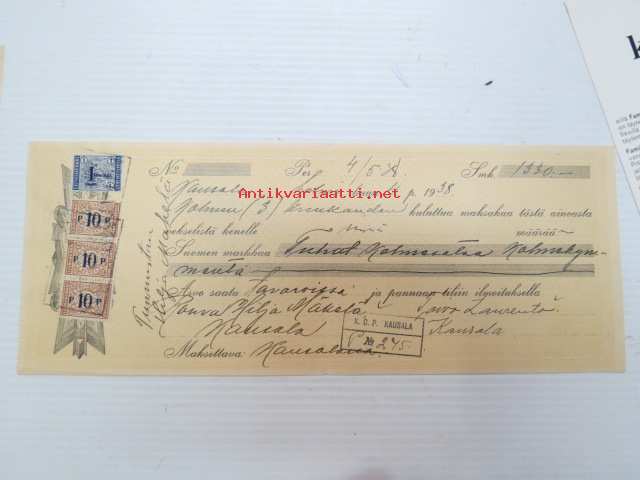 No Per 4/5 38 Smk 1330.—
Kausala p. 1938
Antikvariaatti.net
Kolmen (3) kuukauden kuluttua maksakaa tästä ainoasta
vekselistä henelle määrää
Suomen markkaa Tuhat Kolmesataa Kolmekym-
mentä
Arvo saatu Tavaroissa ja pannaan tiliin ilmoituksella
Rouva Hilja Mäkelä Laurento
Kausala Kausala
Maksettava: Kausalassa
K. O. P. KAUSALA
No 245
Hilja Mäkelä
1
P 10 P
P 10 P
P 10 P
k